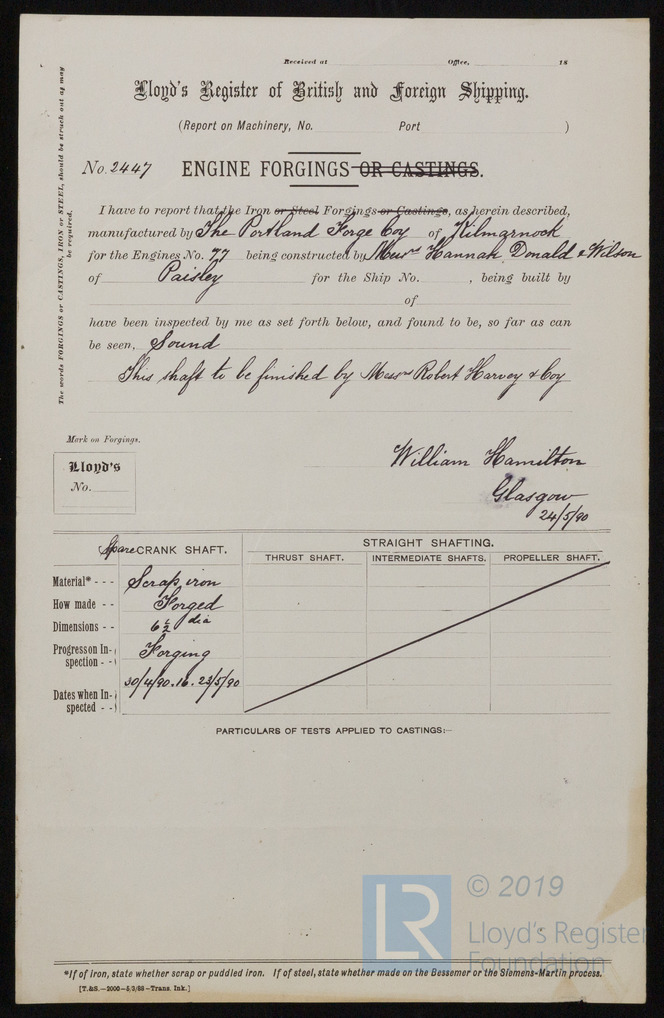 Received at Office, 18
Lloyd's Register of British and Foreign Shipping.
(Report on Machinery, No. Port )
No. 2447 ENGINE FORGINGS OR CASTINGS.
I have to report that the Iron or Steel Forgings or Castings, as herein described,
manufactured by The Portland Forge Coy of Kilmarnock
for the Engines No. 77 being constructed by Messrs Hannah, Donald & Wilson
of Paisley for the Ship No. , being built by
of
have been inspected by me as set forth below, and found to be, so far as can
be seen, Sound
This shaft to be finished by Messrs Robert Harvey & Coy
The words FORGINGS or CASTINGS, IRON or STEEL, should be struck out as may
be required.
Mark on Forgings.
Lloyd's
No.
William Hamilton
Glasgow
24/5/90
Spare CRANK SHAFT.
STRAIGHT SHAFTING.
THRUST SHAFT. INTERMEDIATE SHAFTS. PROPELLER SHAFT.
Material* - - - Scrap iron
How made - - Forged
Dimensions - - dia
Progress on In-
spection - - Forging
Dates when In-
spected - - 30/4/90. 16. 23/5/90
PARTICULARS OF TESTS APPLIED TO CASTINGS:—
LR
© 2019
Lloyd's Register
Foundation
*If of iron, state whether scrap or puddled iron. If of steel, state whether made on the Bessemer or the Siemens-Martin process.
[T.&S.—2000—5/3/88—Trans. Ink.]